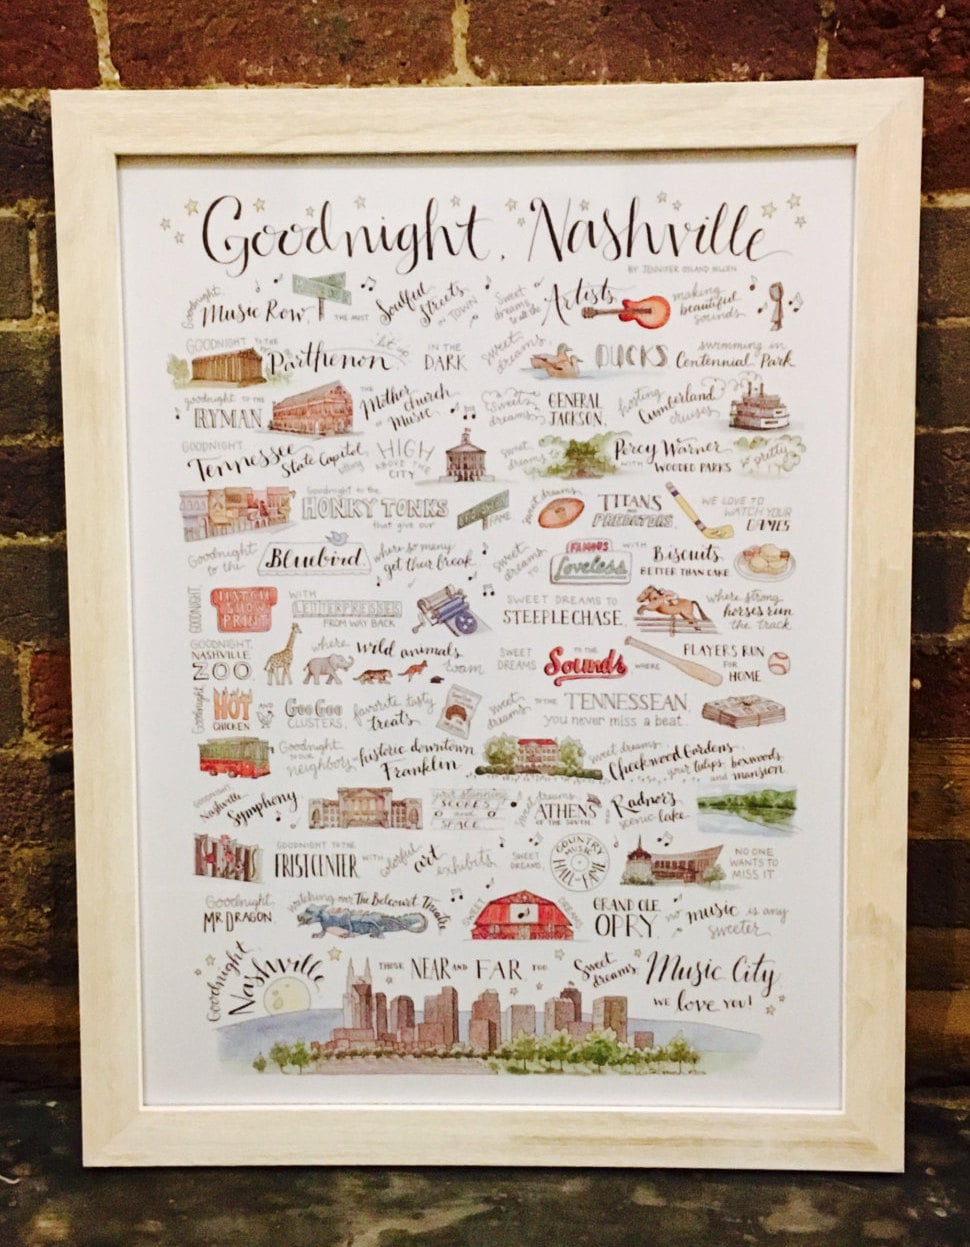 Goodnight, Nashville
BY JENNIFER
Goodnight Music Row, THE MOST Soulful Streets IN TOWN Sweet dreams to all the Artists making beautiful sounds
GOODNIGHT TO THE Parthenon IN THE DARK sweet dreams DUCKS swimming in Centennial Park
goodnight to the RYMAN THE Mother church of Music Sweet dreams GENERAL JACKSON, hosting Cumberland cruises
GOODNIGHT Tennessee State Capitol sitting HIGH ABOVE THE CITY sweet dreams to Percy Warner WITH WOODED PARKS so pretty
Goodnight to the HONKY TONKS that give our FAME sweet dreams TITANS and PREDATORS, WE LOVE TO WATCH YOUR GAMES
Goodnight to the Bluebird, where so many get their break Sweet dreams to FAMOUS Loveless WITH BISCUITS BETTER THAN CAKE
GOODNIGHT HATCH SHOW PRINT WITH LETTERPRESSES FROM WAY BACK SWEET DREAMS TO STEEPLECHASE, where strong horses run the track
GOODNIGHT, NASHVILLE ZOO, where wild animals roam SWEET DREAMS TO THE Sounds WHERE PLAYERS RUN FOR HOME
Goodnight HOT CHICKEN and GOO GOO CLUSTERS, favorite tasty treats sweet dreams TO THE TENNESSEAN, you never miss a beat
Goodnight TO OUR neighbors historic downtown Franklin sweet dreams Cheekwood Gardens, your tulips, boxwoods, and mansion
GOODNIGHT Nashville Symphony your stunning SCORES and SPACE sweet dreams ATHENS OF THE SOUTH Radnor's scenic lake
GOODNIGHT TO THE FRIST CENTER WITH colorful art exhibits SWEET DREAMS, COUNTRY MUSIC HALL of FAME NO ONE WANTS TO MISS IT
Goodnight, MR DRAGON, watching over The Belcourt Theatre SWEET DREAMS GRAND OLE OPRY, no music is any sweeter
Goodnight Nashville THOSE NEAR AND FAR TOO Sweet dreams Music City WE love you!